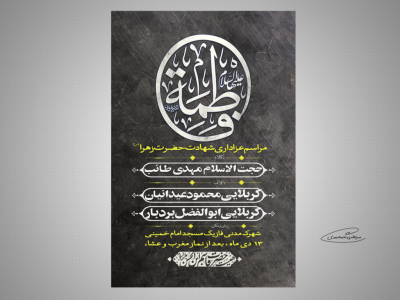 فاطمة
علیها السلام
مراسم عزاداری شهادت حضرت زهرا
حجت الاسلام مهدی طائب
کربلایی محمود عیدانیان
کربلایی ابوالفضل بردبار
شهرک مدنی فاز یک مسجد امام خمینی
۱۳ دی ماه ، بعد از نماز مغرب و عشاء